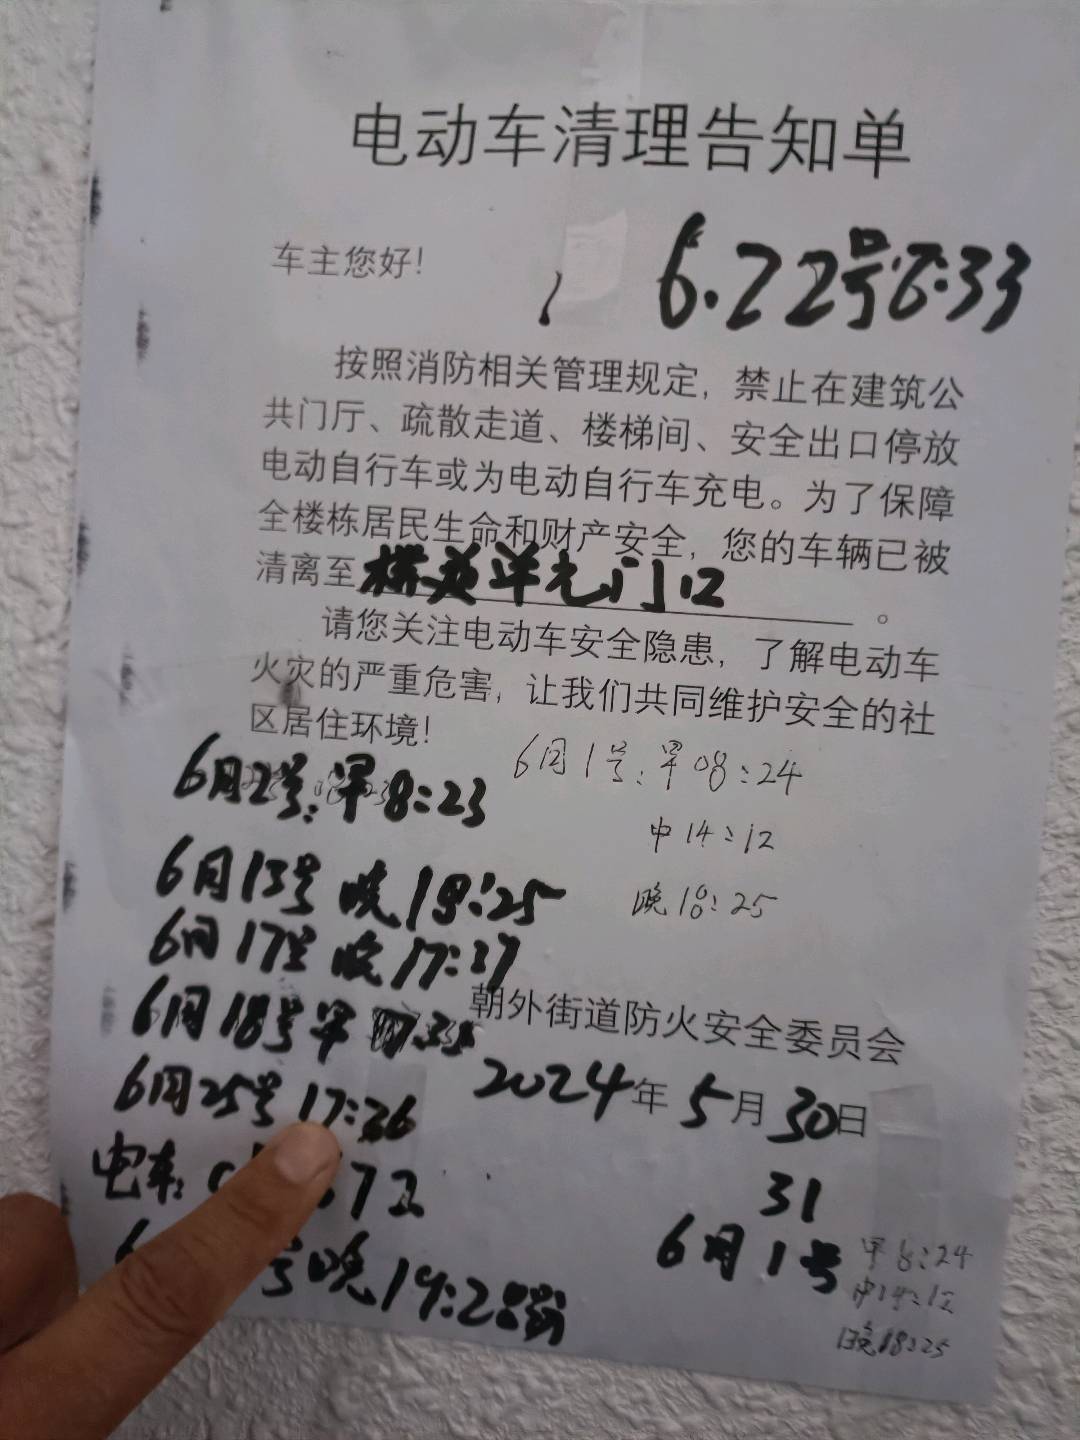 电动车清理告知单
车主您好！
6.22号8:33
按照消防相关管理规定，禁止在建筑公
共门厅、疏散走道、楼梯间、安全出口停放
电动自行车或为电动自行车充电。为了保障
全楼栋居民生命和财产安全，您的车辆已被
清离至 单元门口 。
请您关注电动车安全隐患，了解电动车
火灾的严重危害，让我们共同维护安全的社
区居住环境！
6月1号：早08:24
中14:12
晚18:25
6月2号：早8:23
6月13号 晚18:25
6月17号 晚17:37
6月18号早
6月25号17:36
电车：
号晚19:28
朝外街道防火安全委员会
2024年5月30日
31
6月1号
早8:24
中14:12
晚18:25